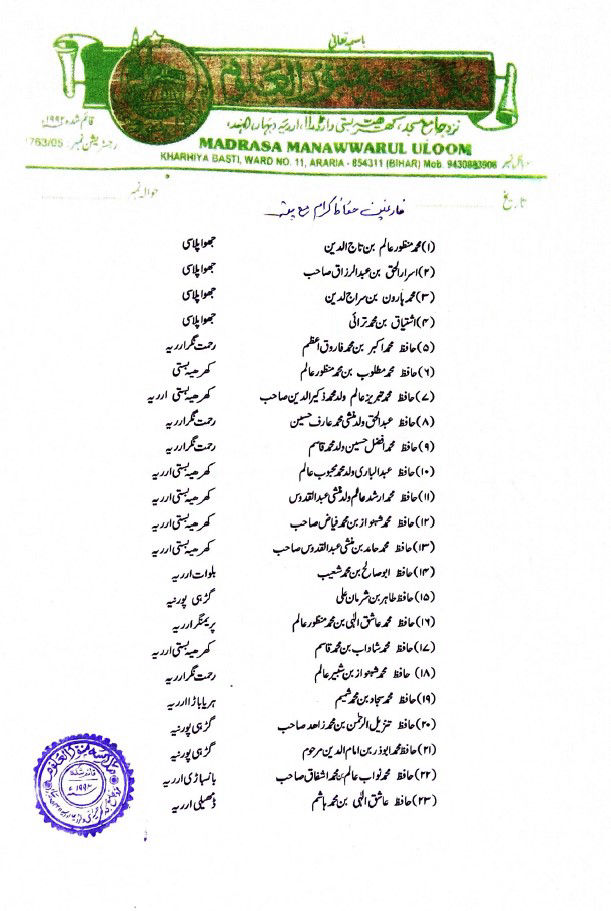 باسمہ تعالیٰ
مدرسہ منور العلوم
نزد جامع مسجد، کھرھیہ بستی وارڈ ۱۱، ارریہ (بہار) الہند
قائم شدہ ۱۹۹۲ء
رجسٹریشن نمبر: 763/05
MADRASA MANAWWARUL ULOOM
موبائل نمبر
KHARHIYA BASTI, WARD NO. 11, ARARIA - 854311 (BIHAR) Mob. 9430883906
تاریخ
حوالہ نمبر
فارغین حفاظ کرام مع پتہ
(۱) محمد منظور عالم بن تاج الدین جھوا پلاسی
(۲) اسرار الحق بن عبدالرزاق صاحب جھوا پلاسی
(۳) محمد ہارون بن سراج لدین جھوا پلاسی
(۴) اشتیاق بن محمد ترائی جھوا پلاسی
(۵) حافظ محمد اکبر بن محمد فاروق اعظم رحمت نگر ارریہ
(۶) حافظ محمد مطلوب بن محمد منظور عالم کھرھیہ بستی
(۷) حافظ محمد تبریز عالم ولد محمد ذکیر الدین صاحب کھرھیہ بستی ارریہ
(۸) حافظ عبدالحق ولد منشی محمد عارف حسین رحمت نگر ارریہ
(۹) حافظ محمد افضل حسین ولد محمد قاسم رحمت نگر ارریہ
(۱۰) حافظ عبدالباری ولد محمد محبوب عالم کھرھیہ بستی ارریہ
(۱۱) حافظ محمد ارشد عالم ولد منشی عبدالقدوس کھرھیہ بستی ارریہ
(۱۲) حافظ محمد شہنواز بن محمد فیاض صاحب کھرھیہ بستی ارریہ
(۱۳) حافظ محمد حامد بن منشی عبدالقدوس صاحب کھرھیہ بستی ارریہ
(۱۴) حافظ ابو صالح بن محمد شعیب بلوات ارریہ
(۱۵) حافظ طاہر بن شرمان علی گڑہی پورنیہ
(۱۶) حافظ محمد عاشق الٰہی بن محمد منظور عالم پریمنگر ارریہ
(۱۷) حافظ محمد شاداب بن محمد قاسم کھرھیہ بستی ارریہ
(۱۸) حافظ محمد شہنواز بن شبیر عالم رحمت نگر ارریہ
(۱۹) حافظ محمد سجاد بن محمد شمیم ہریاباڑا ارریہ
(۲۰) حافظ تنزیل الرحمٰن بن محمد زاھد صاحب گڑہی پورنیہ
(۲۱) حافظ محمد ابوذر بن امام الدین مرحوم گڑہی پورنیہ
(۲۲) حافظ محمد نواب عالم بن محمد اشفاق صاحب بانسباڑی ارریہ
(۲۳) حافظ عاشق الٰہی بن محمد ہاشم ڈھیلی ارریہ
مدرسہ منور العلوم
قائم شدہ
۱۹۹۲ء